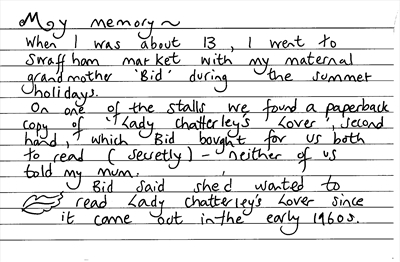 My memory~
When I was about 13, I went to
Swaffham market with my maternal
grandmother 'Bid' during the summer
holidays.
On one of the stalls we found a paperback
copy of 'Lady Chatterley's Lover', second
hand, which Bid bought for us both
to read (secretly) – neither of us
told my mum.
Bid said she'd wanted to
read Lady Chatterley's Lover since
it came out in the early 1960s.